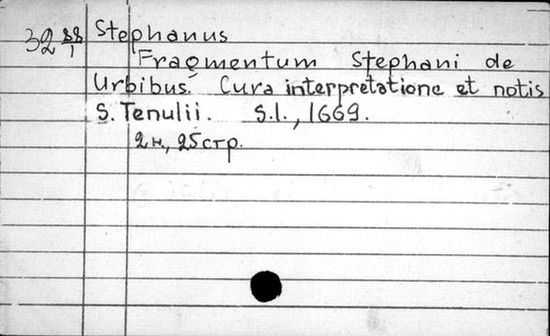 32 88/1 Stephanus
Fragmentum Stephani de
Urbibus. Cura interpretatione et notis
S. Tenulii. S.l., 1669.
2 н., 25 стр.